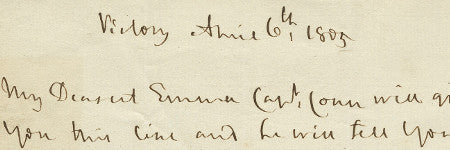 Victory April 6th, 1805
My Dearest Emma Capt. Conn will gi
You this line and he will tell You